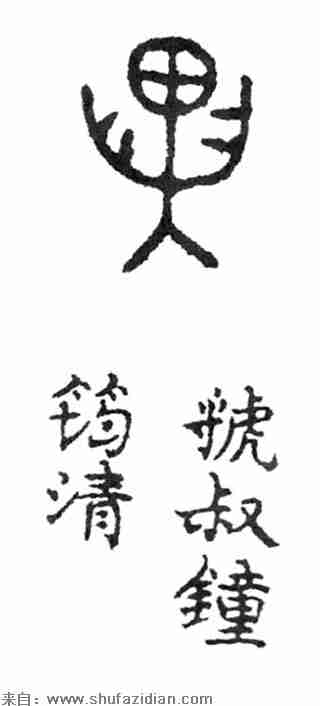 異
虢叔鐘
筠清
来自：www.shufazidian.com